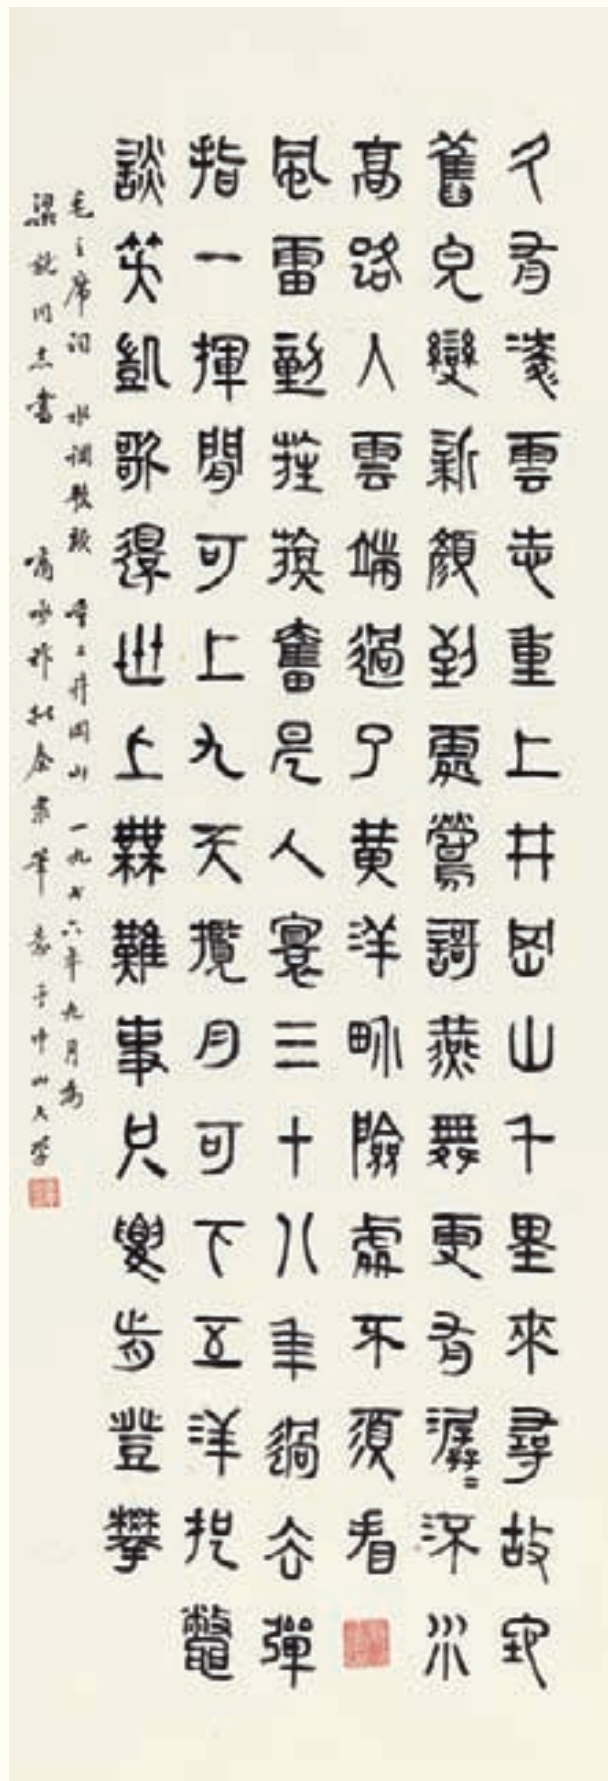 久有淩雲志重上井岡山千里來尋故地
舊皃變新顏到處鶯謌燕舞更有潺〻流水
高路入雲端過了黃洋畍險處不須看
風雷動旌旗奮是人寰三十八年過去彈
指一揮間可上九天攬月可下五洋捉鼈
談笑凱歌還世上無難事只要肯登攀
毛主席詞 水調歌頭 重上井岡山 一九七六年九月為
梁同志書 商承祚拟秦隶筆意于中山大學